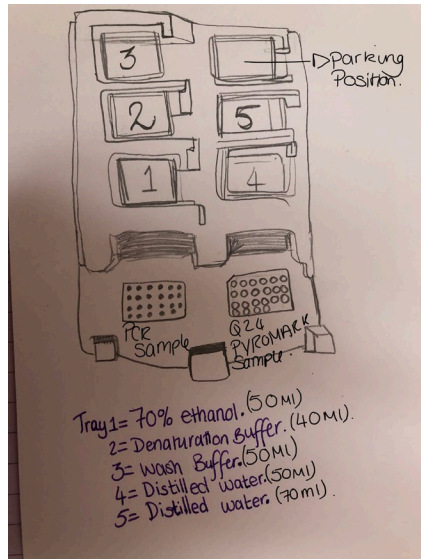 3
Parking
Position.
2
5
1
4
PCR
Sample
Q24
PYROMARK
Sample.
Tray 1= 70% ethanol. (50Ml)
2= Denaturation Buffer. (40Ml).
3= Wash Buffer. (50Ml)
4= Distilled water. (50Ml)
5= Distilled water. (70ml).